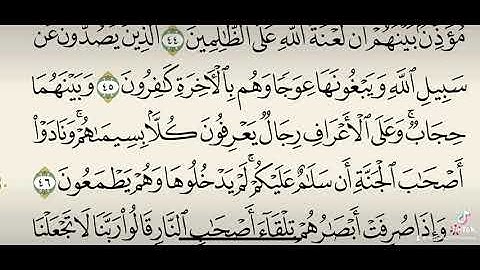 مُؤَذِّنٌۢ بَيْنَهُمْ أَن لَّعْنَةُ ٱللَّهِ عَلَى ٱلظَّٰلِمِينَ ٤٤ ٱلَّذِينَ يَصُدُّونَ عَن
سَبِيلِ ٱللَّهِ وَيَبْغُونَهَا عِوَجًا وَهُم بِٱلْأَخِرَةِ كَٰفِرُونَ ٤٥ وَبَيْنَهُمَا
حِجَابٌ ۚ وَعَلَى ٱلْأَعْرَافِ رِجَالٌ يَعْرِفُونَ كُلًّۢا بِسِيمَىٰهُمْ ۚ وَنَادَوْا۟
أَصْحَٰبَ ٱلْجَنَّةِ أَن سَلَٰمٌ عَلَيْكُمْ ۚ لَمْ يَدْخُلُوهَا وَهُمْ يَطْمَعُونَ ٤٦
وَإِذَا صُرِفَتْ أَبْصَٰرُهُمْ تِلْقَآءَ أَصْحَٰبِ ٱلنَّارِ قَالُوا۟ رَبَّنَا لَا تَجْعَلْنَا